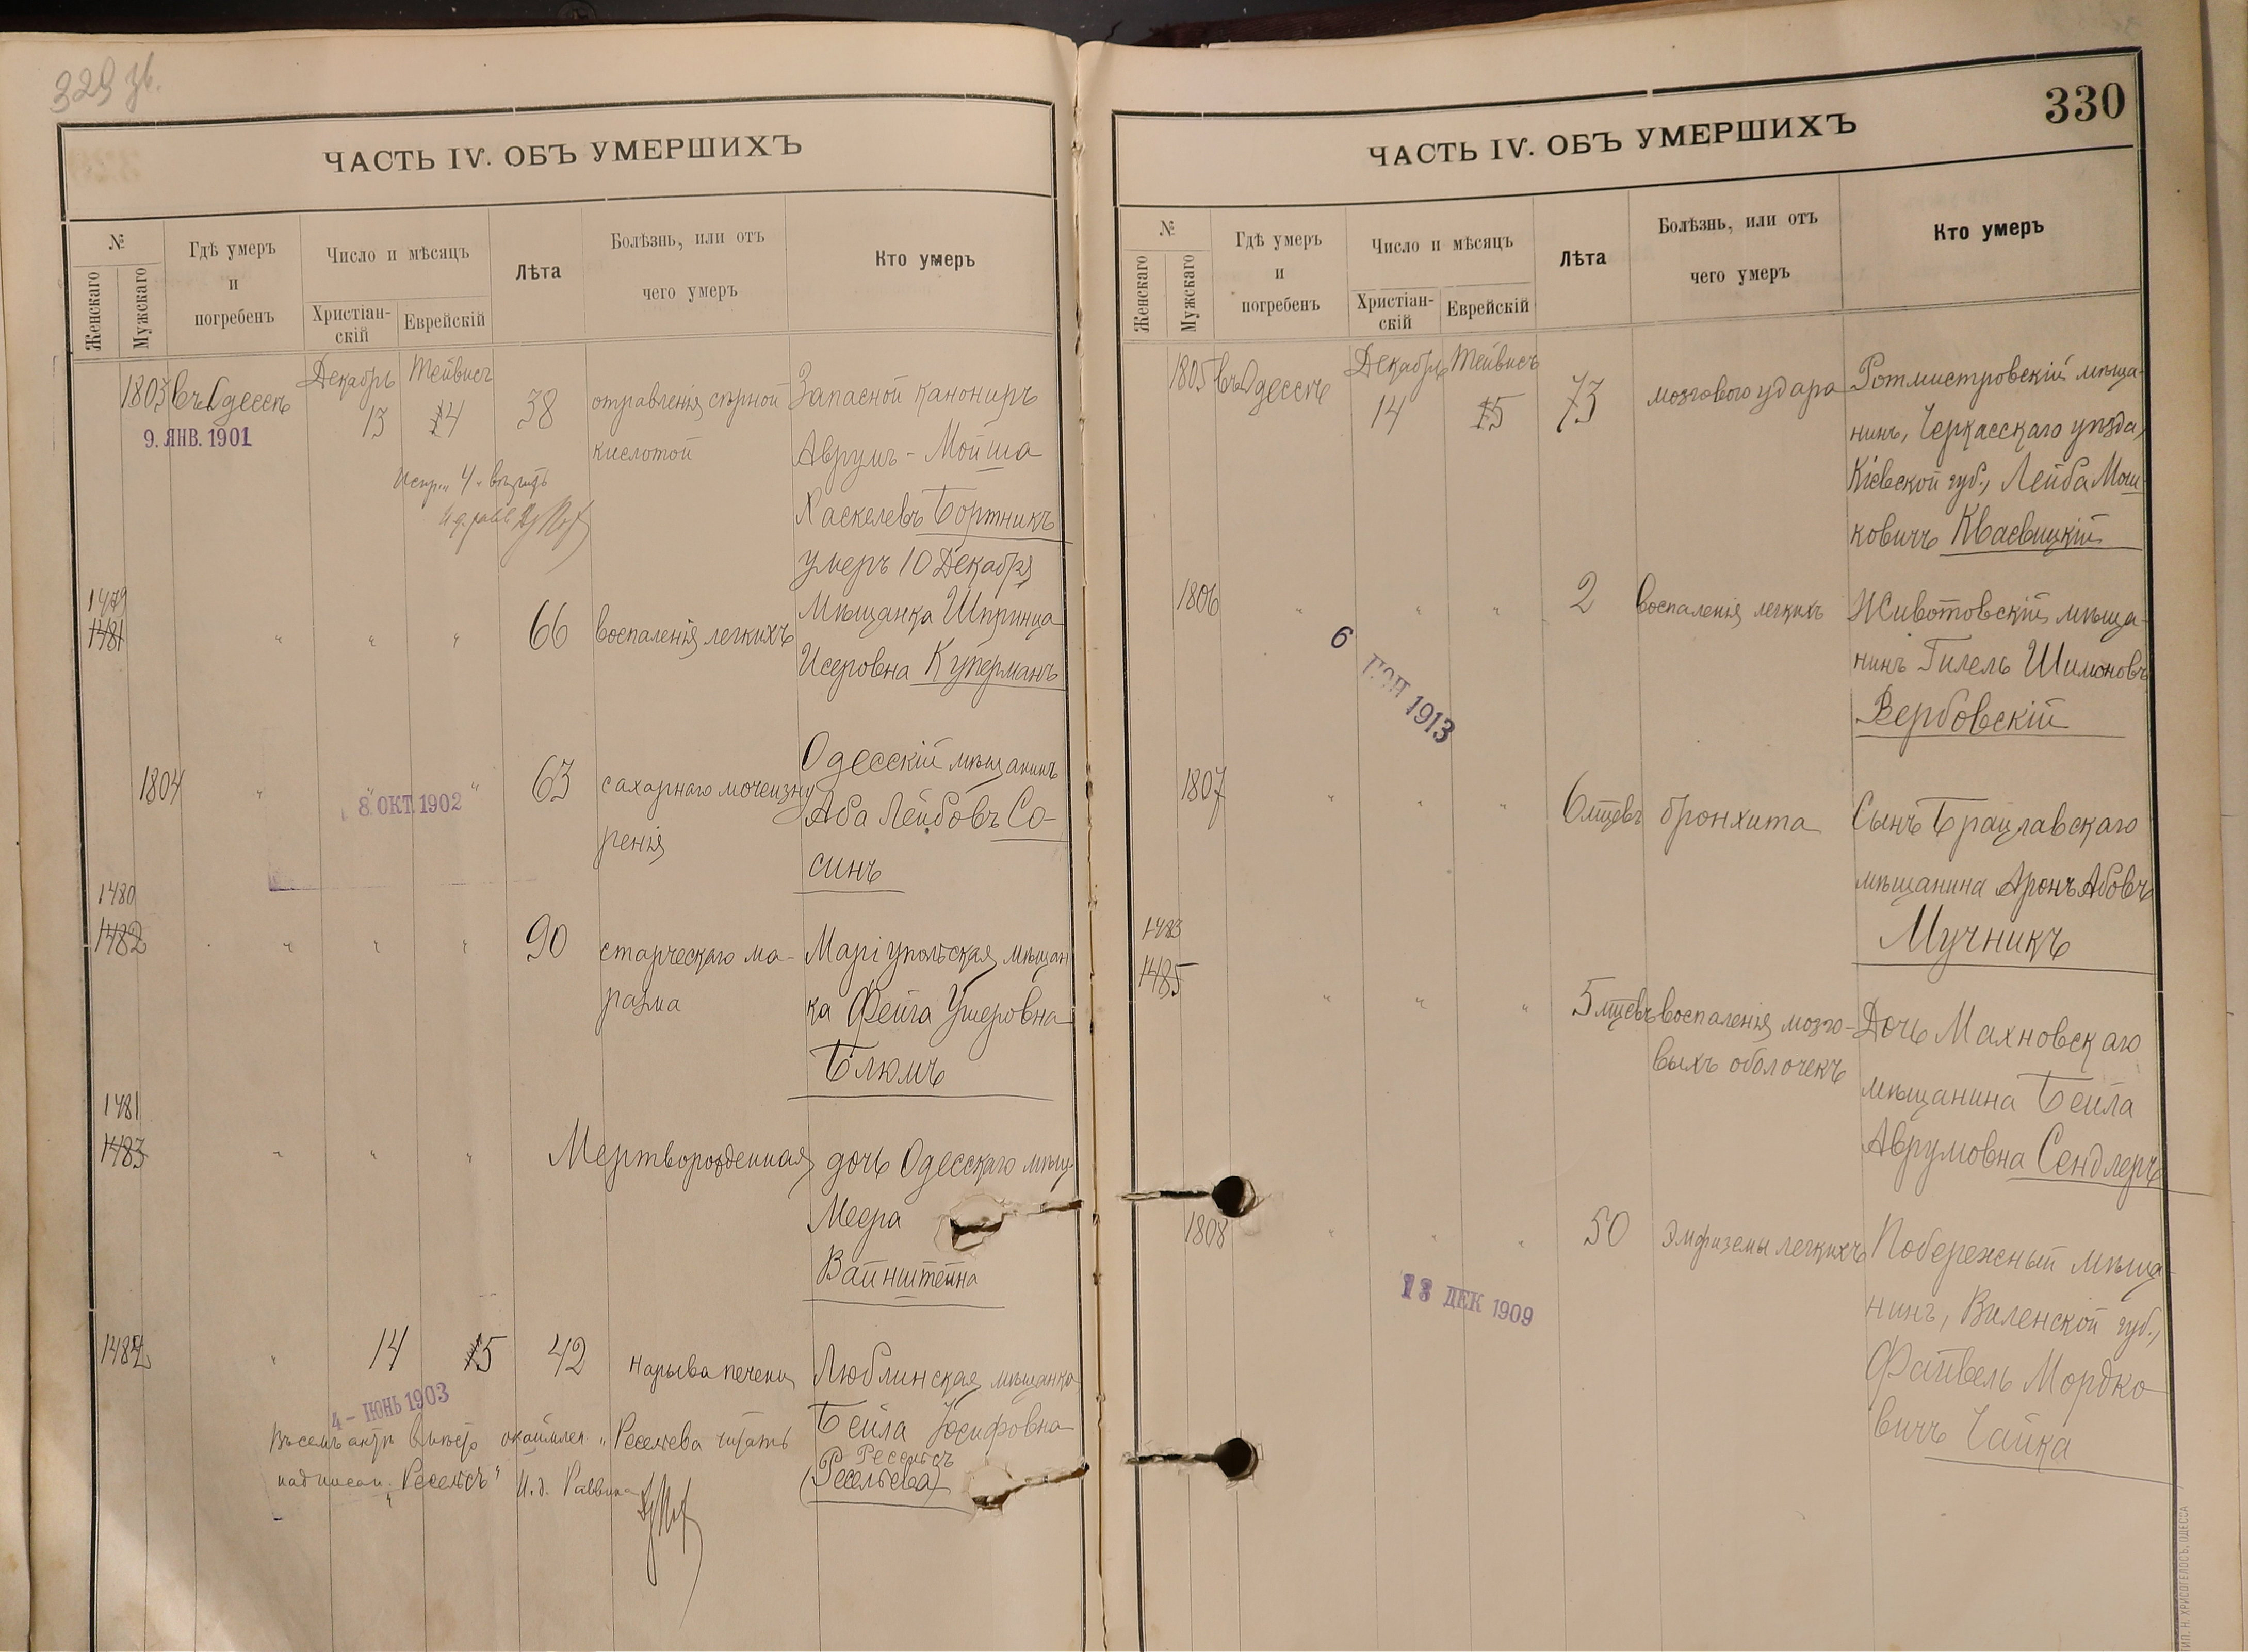 329 зв.
ЧАСТЬ IV. ОБЪ УМЕРШИХЪ
№
Женскаго
Мужскаго
Гдѣ умеръ
и
погребенъ
Число и мѣсяцъ
Христіан-
скій
Еврейскій
Лѣта
Болѣзнь, или отъ
чего умеръ
Кто умеръ
1803 въ Одессѣ Декабрь 13 Тейвисъ 4 38 отравленія сѣрной Запасной канониръ
9. ЯНВ. 1901
кислотой Аврумъ-Мойша
Хаскелевъ Бортникъ
умеръ 10 Декабря
1479
1481 " " " 66 воспаленія легкихъ Мѣщанка Шпринца
Исеровна Куперманъ
1804 " " " 63 сахарнаго мочеизну Одесскій мѣщанинъ
8 ОКТ. 1902
ренія Аба Лейбовъ Со-
синъ
1480
1482 " " " 90 старческаго ма- Маріупольская мѣщан
разма ка Фейга Ушеровна
Блюмъ
1481
1483 " " " Мертворожденная дочь Одесскаго мѣщ.
Меера
Вайнштейна
1482 " 14 5 42 нарыва печени Люблинская мѣщанка
4 – ІЮНЬ 1903
Бейла Іосифовна
Ресельсъ
(Ресельева)
Въ семъ актѣ вмѣсто "Ресельева читать
надписан. "Ресельсъ" И. д. Раввина
330
ЧАСТЬ IV. ОБЪ УМЕРШИХЪ
№
Женскаго
Мужскаго
Гдѣ умеръ
и
погребенъ
Число и мѣсяцъ
Христіан-
скій
Еврейскій
Лѣта
Болѣзнь, или отъ
чего умеръ
Кто умеръ
1805 въ Одессѣ Декабрь 14 Тейвисъ 5 73 мозгового удара Ротмистровскій мѣща-
нинъ, Черкасскаго уѣзда,
Кіевской губ., Лейба Мош
ковичъ Кваевицкій
1806 " " " 2 воспаленія легкихъ Животовскій мѣща-
нинъ Гилель Шимоновъ
Вербовскій
6 1913
1807 " " " 6 мцевъ бронхита Сынъ Брацлавскаго
мѣщанина Аронъ Абовъ
Мучникъ
1483
1485 " " " 5 мцевъ воспаленія мозго- Дочь Махновскаго
выхъ оболочекъ мѣщанина Бейла
Аврумовна Сендлеръ
1808 " " " 50 Эмфиземы легкихъ Побережный мѣща-
13 ДЕК 1909
нинъ, Виленской губ.,
Файвель Мордко
вичъ Чайка
ТИП. Н. ХРИСОГЕЛОСЪ, ОДЕССА